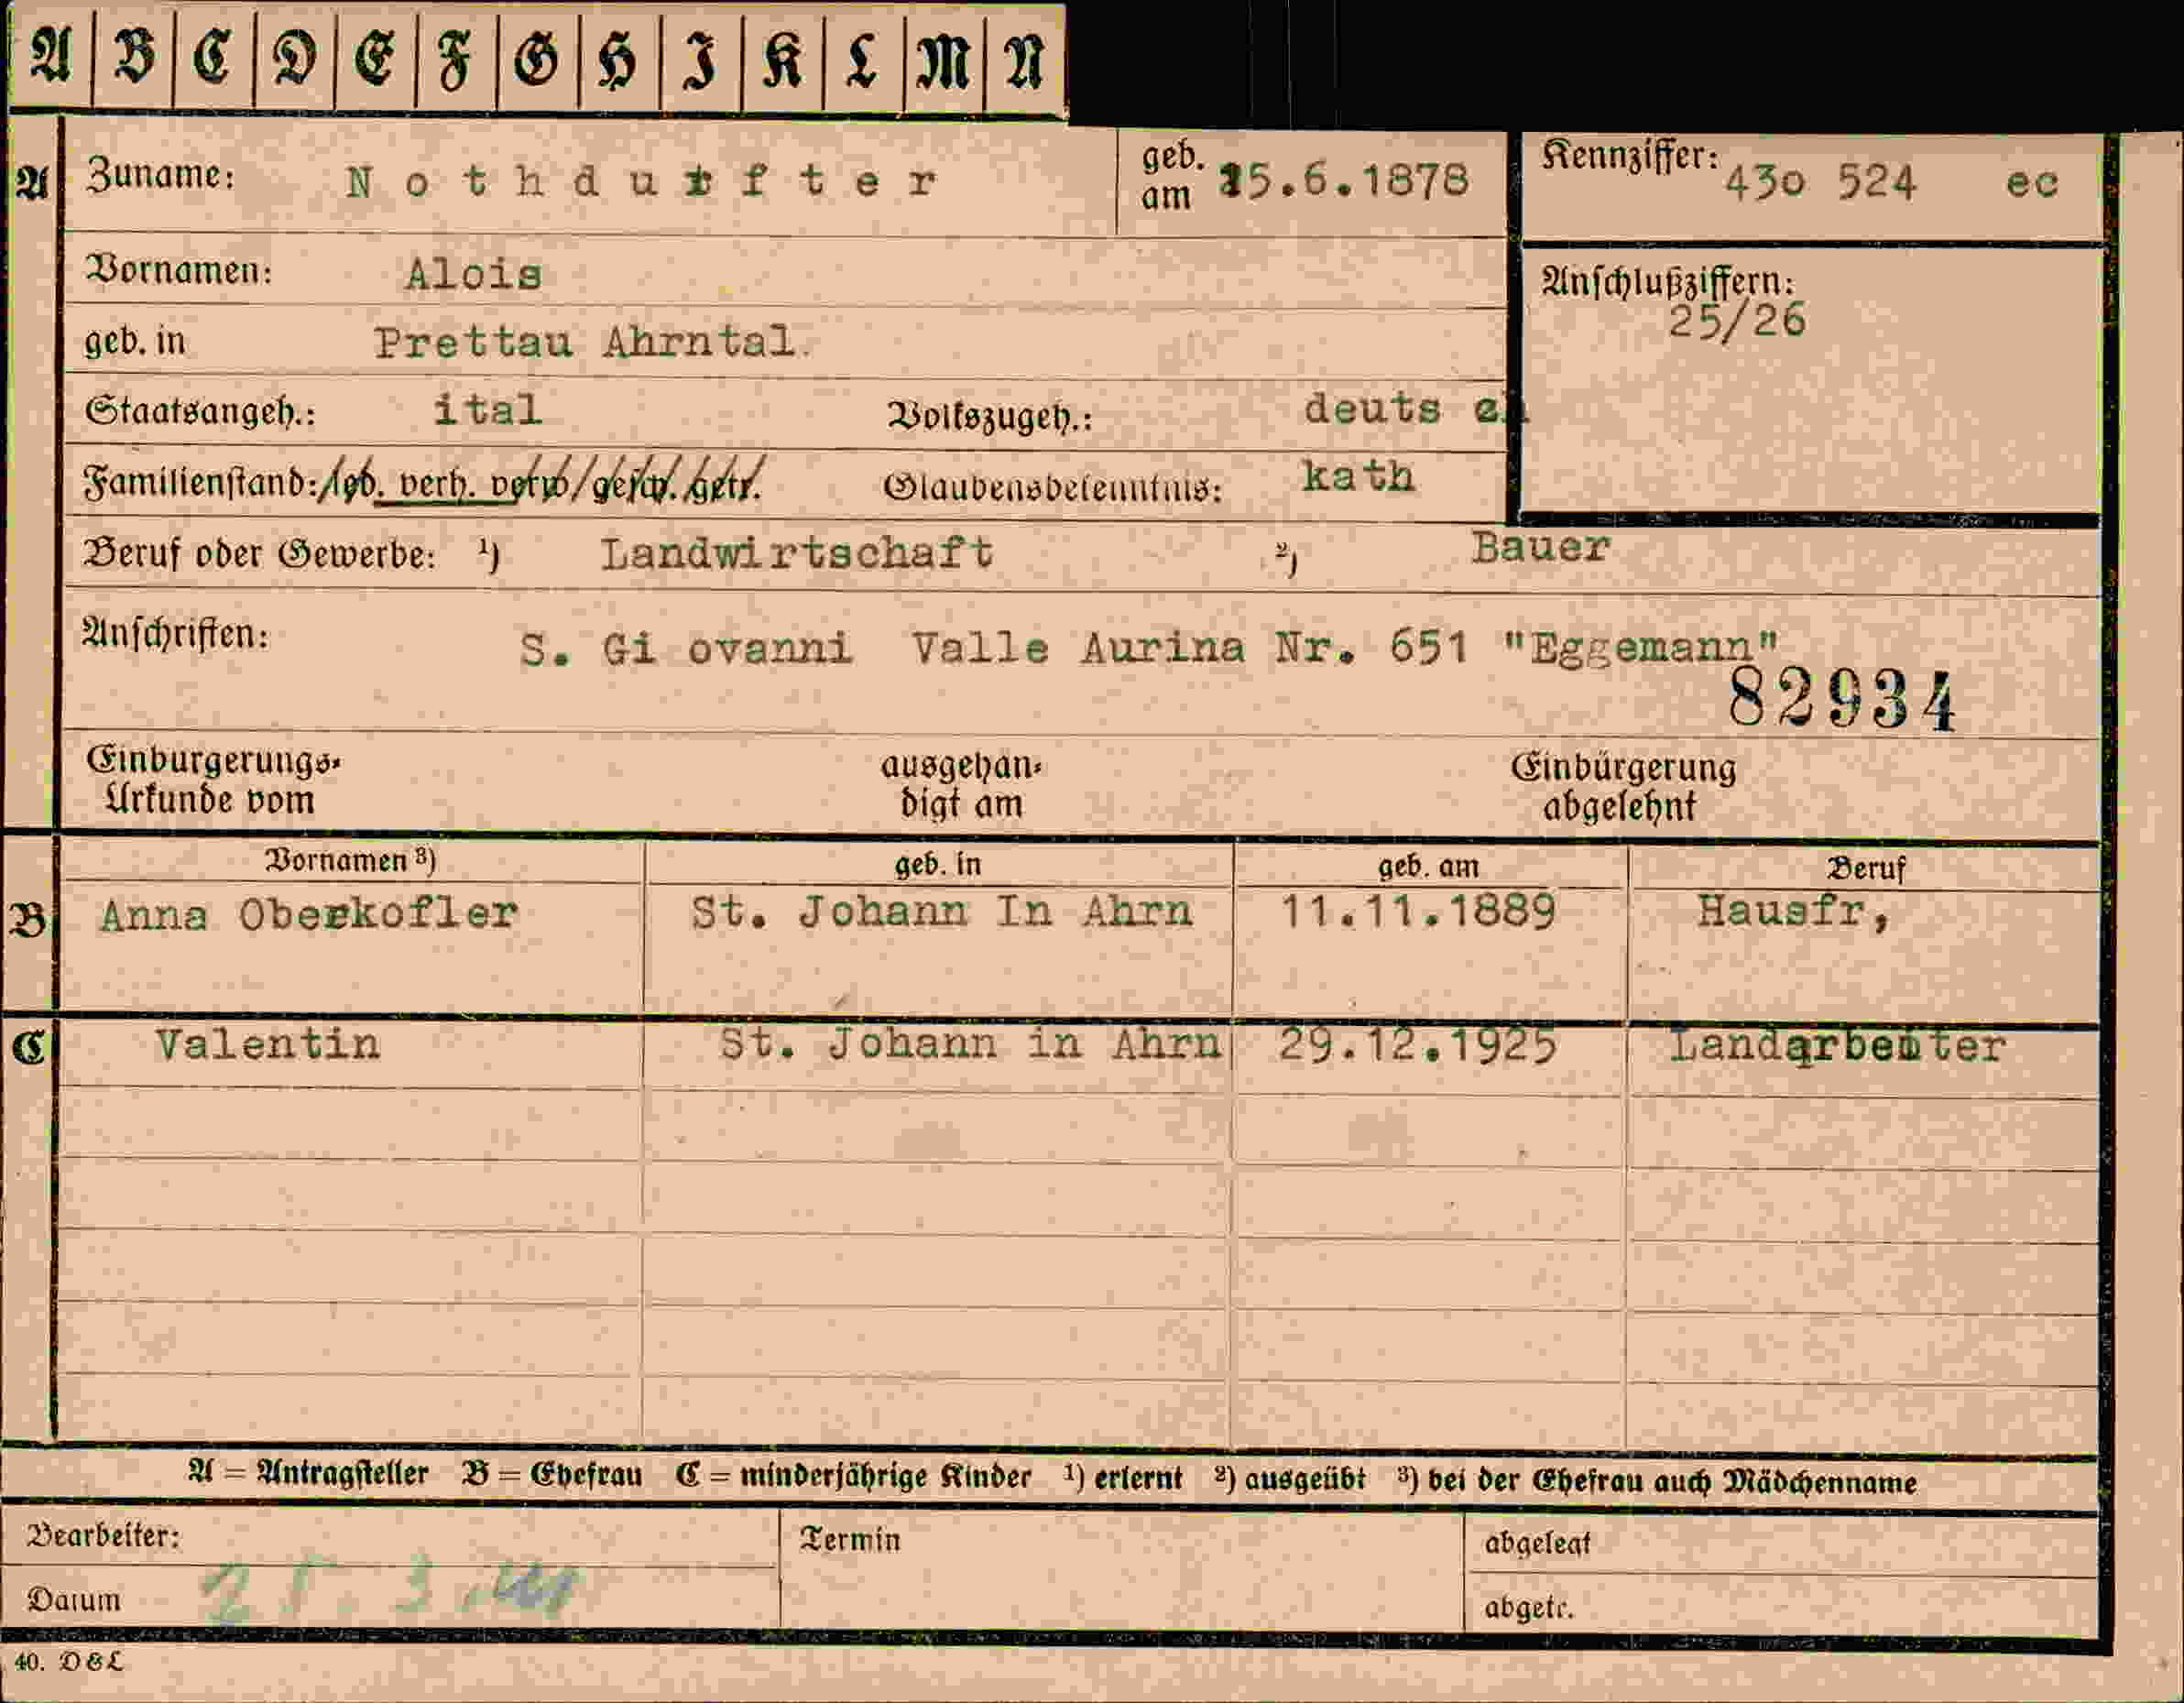 A B C D E F G H I K L M N
A Zuname: Nothdurfter geb. am 25.6.1878 Kennziffer: 430 524 ec
Vornamen: Alois
Anschlußziffern: 25/26
geb. in Prettau Ahrntal.
Staatsangeh.: ital Volkszugeh.: deuts ch
Familienstand: led. verh. verw. gesch. getr. Glaubensbekenntnis: kath
Beruf oder Gewerbe: ¹) Landwirtschaft ²) Bauer
Anschriften: S. Gi ovanni Valle Aurina Nr. 651 "Eggemann"
82934
Einbürgerungs- ausgehän- Einbürgerung
Urkunde vom digt am abgelehnt
Vornamen ³) geb. in geb. am Beruf
B Anna Oberkofler St. Johann In Ahrn 11.11.1889 Hausfr,
C Valentin St. Johann in Ahrn 29.12.1925 Landarbeiter
A = Antragsteller B = Ehefrau C = minderjährige Kinder ¹) erlernt ²) ausgeübt ³) bei der Ehefrau auch Mädchenname
Bearbeiter: Termin abgelegt
Datum abgetr.
40. D&L